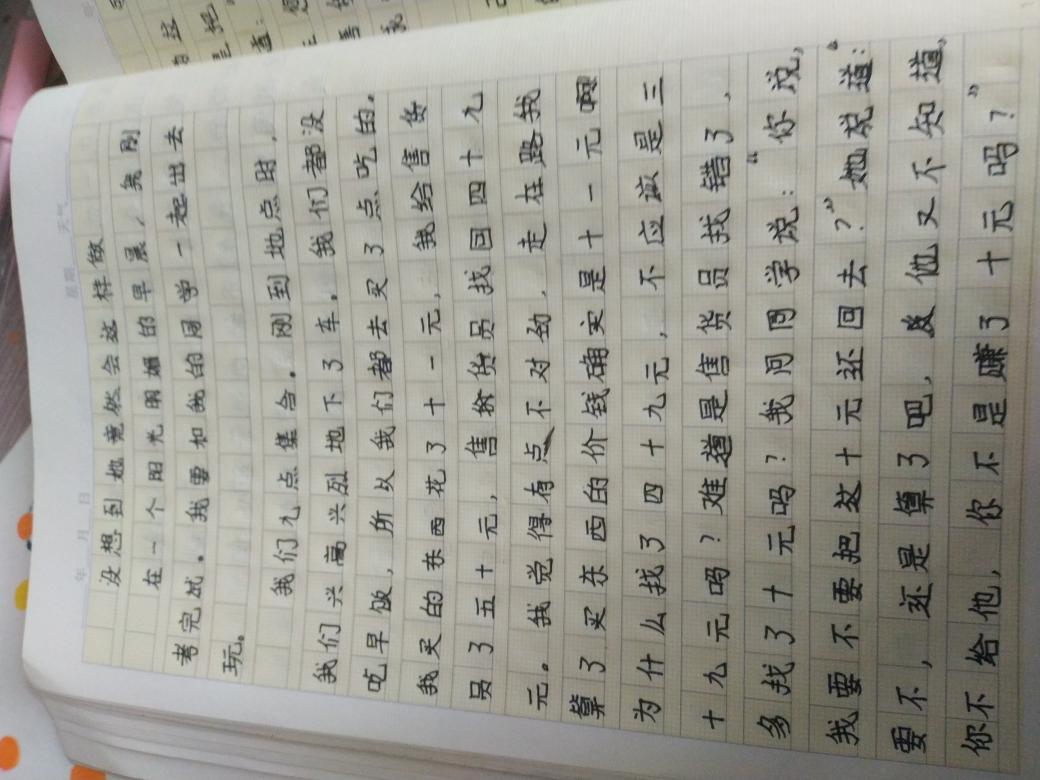 年 月 日 星期 天气
没想到她竟然会这样做
在一个阳光明媚的早晨，我刚
考完试。我要和我的同学一起出去
玩。
我们九点集合。刚到地点时，
我们兴高兴烈地下了车。我们都没
吃早饭，所以我们都去买了点吃的。
我买的东西花了十一元，我给售货
员了五十元，售货员找回四十九
元。我觉得有点不对劲，走在路我
算了买东西的价钱确实是十一元啊
为什么找了四十九元，不应该是三
十九元吗？难道是售货员找错了，
多找了十元吗？我问同学说：“你说，
我要不要把这十元还回去？”她说道：“
要不，还是算了吧，反他又不知道，
你不给他，你不是赚了十元吗？”